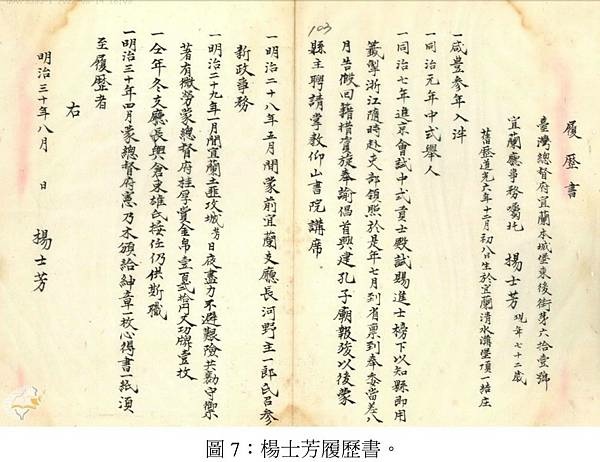 履歷書
臺灣總督府宜蘭本城堡東後街第六拾壹號
宜蘭廳事務囑託 楊士芳 現年七十二歲
舊歷道光六年十二月初八日生於宜蘭清水溝堡頂一結庄
一咸豐參年入泮
一同治元年中式舉人
一同治七年進京會試中式貢士殿試賜進士榜下以知縣即用
籤掣浙江隨時赴支部領照於是年七月到省稟到奉委當差八
月告假回籍措資旋奉諭倡首興建孔子廟報竣以後蒙
縣主聘請掌教仰山書院講席。
103
一明治二十八年五月間蒙前宜蘭支廳長河野主一郎氏召參
新政事務
一明治二十九年一月間宜蘭土匪攻城芳日夜盡力不避艱險共勸守禦
著有微勞蒙總督府 厚賞金帛壹百貳拾円又功牌壹枚
一仝年冬支廳長與倉東雄氏接任仍供斯職
一明治三十年四月蒙總督府憲乃木頒給紳章一枚心得書一紙須
至履歷者
右
明治三十年八月 日 楊士芳
圖 7：楊士芳履歷書。